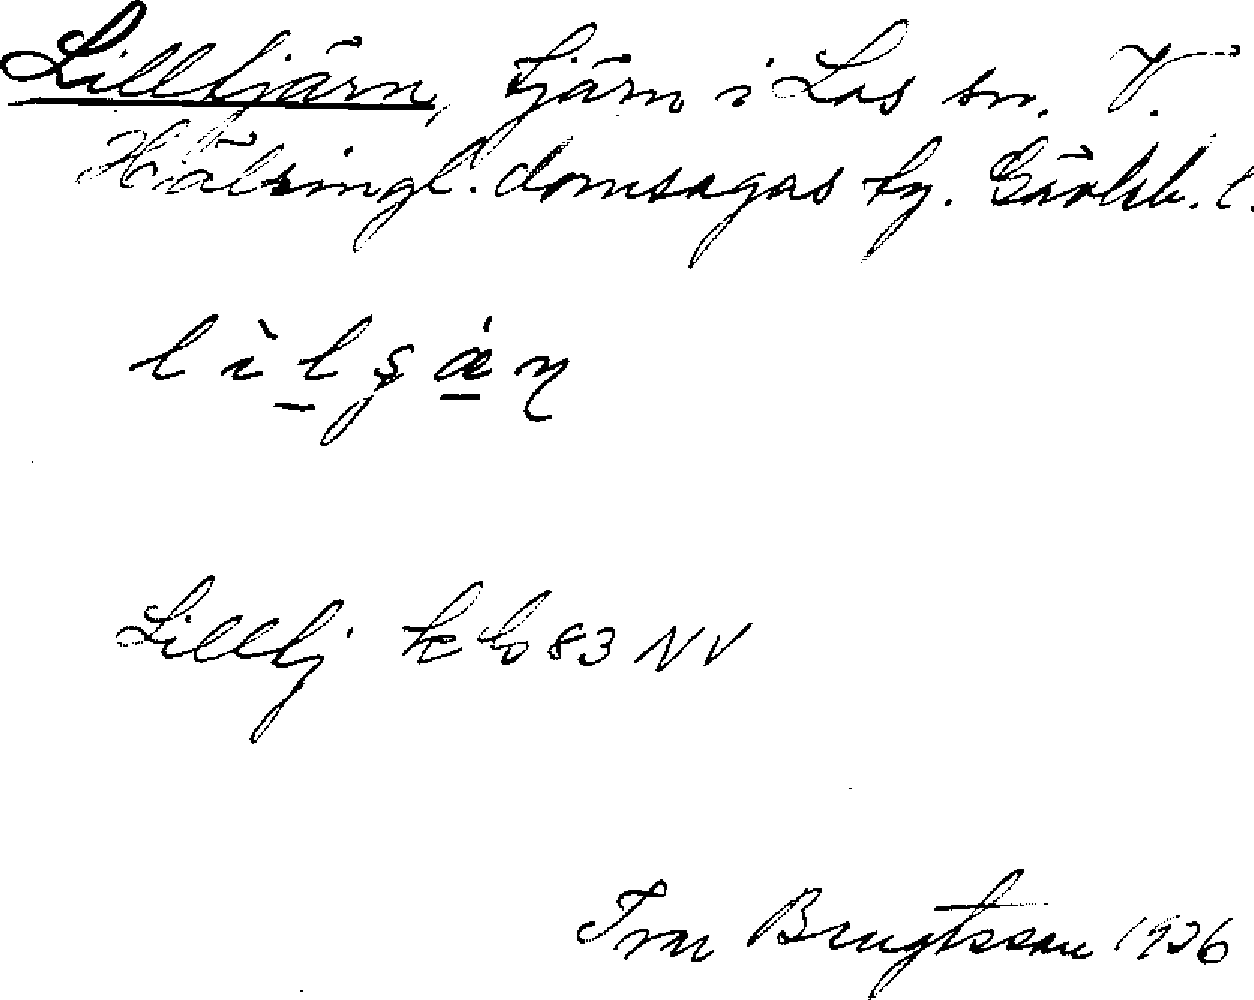 Lilltjärn, tjärn i Los sn. V.
Hälsingl. domsagas tg. Gävleb. l.
Lilltj kb 83 NV
Ivar Bengtsson 1926